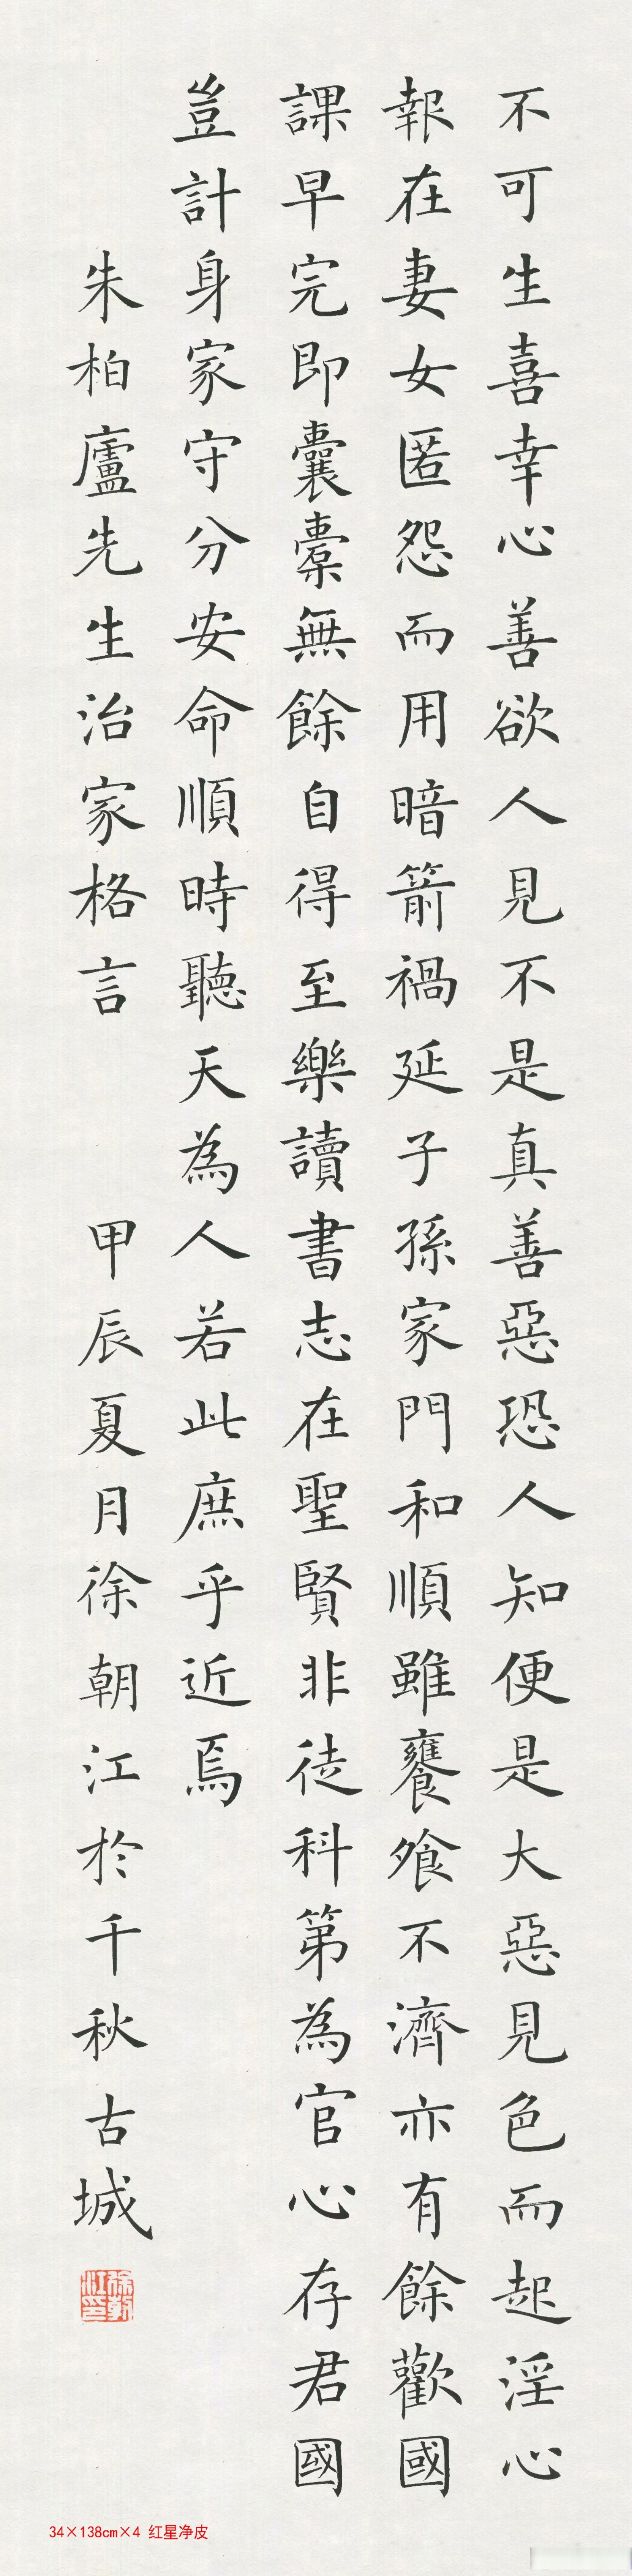 不可生喜幸心善欲人見不是真善惡恐人知便是大惡見色而起淫心
報在妻女匿怨而用暗箭禍延子孫家門和順雖饔飧不濟亦有餘歡國
課早完即囊橐無餘自得至樂讀書志在聖賢非徒科第為官心存君國
豈計身家守分安命順時聽天為人若此庶乎近焉
朱柏廬先生治家格言 甲辰夏月徐朝江於千秋古城
34×138cm×4 红星净皮